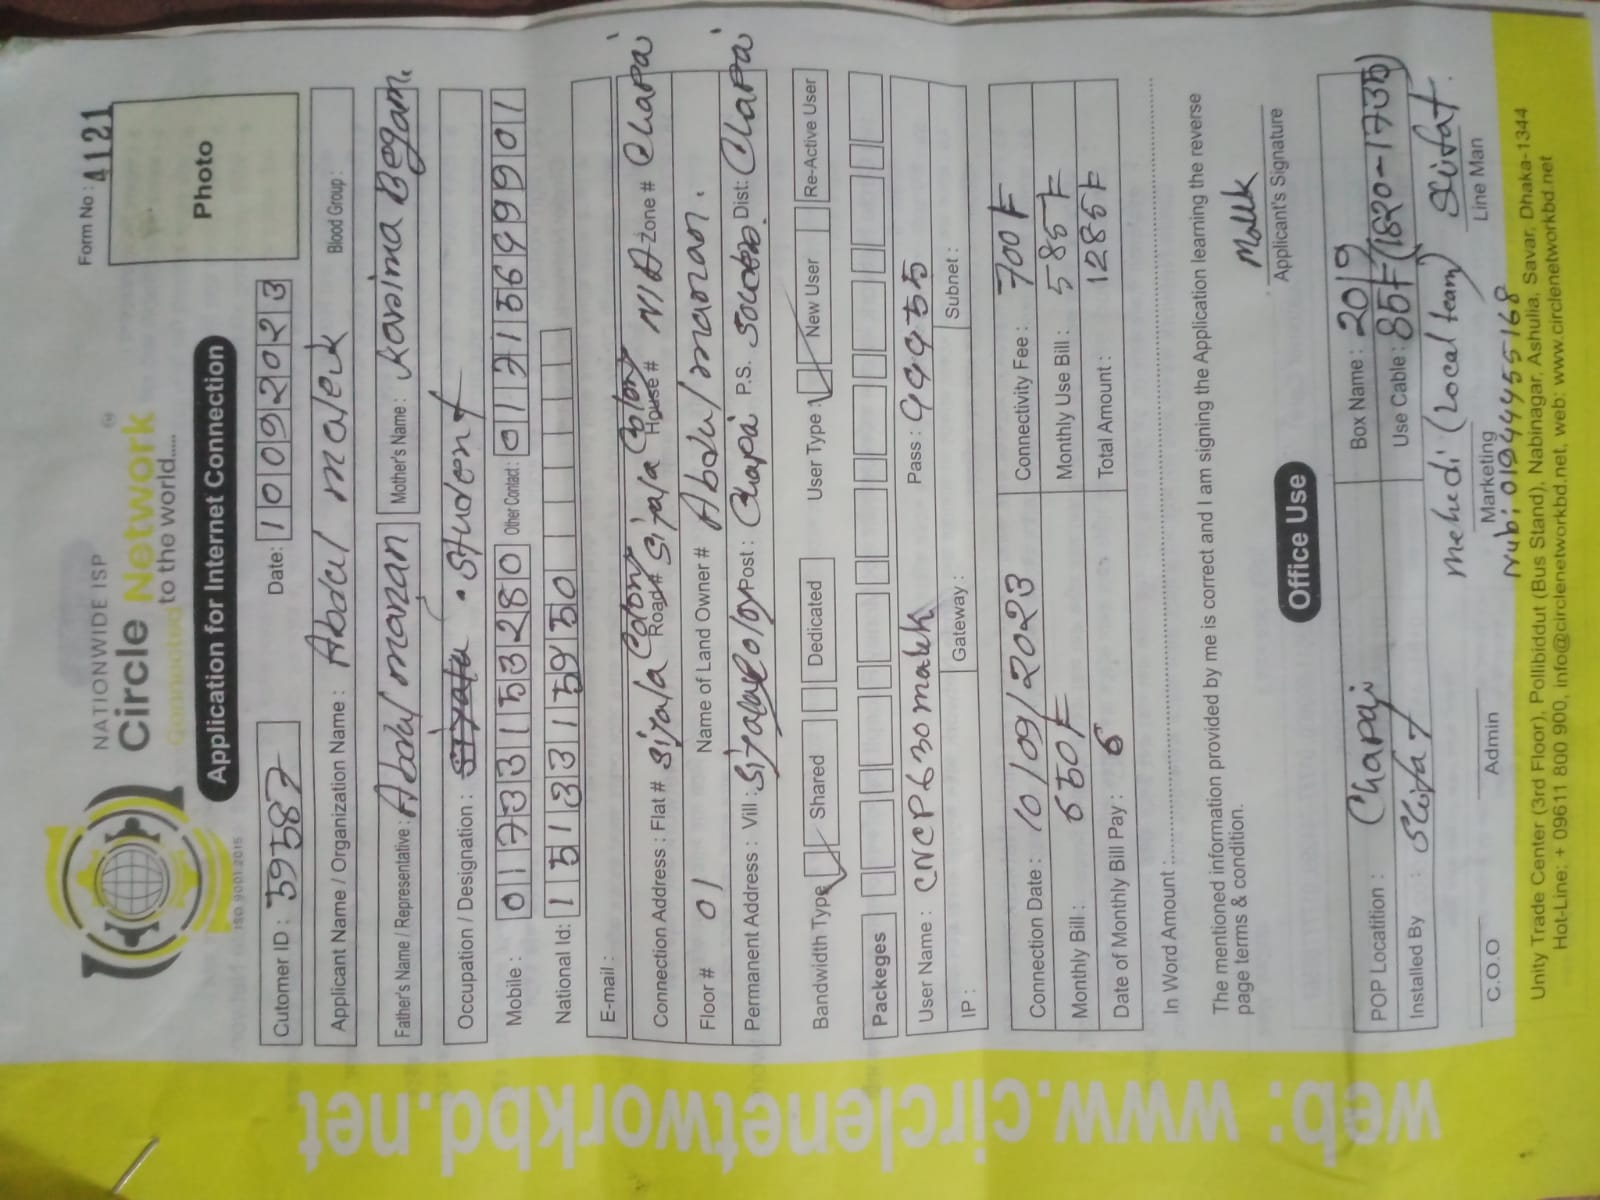 Form No : 4121
NATIONWIDE ISP
Circle Network
Connected to the world.....
ISO 9001:2015
Photo
Application for Internet Connection
Cutomer ID : 39587 Date: 10092023
Applicant Name / Organization Name : Abdul malek Blood Group :
Father's Name / Representative : Abdul manan Mother's Name : karima Begam.
Occupation / Designation : Student
Mobile : 01733153280 Other Contact: 01731569901
National Id: 1513315950
E-mail :
Connection Address : Flat # Siyala Colony Road# Siyala Colony House# N/A Zone # Chapai
Floor # 01 Name of Land Owner # Abdul manan.
Permanent Address : Vill : Siyala Colony Post : Chapai P.S. Dist: Chapai
Bandwidth Type Shared Dedicated User Type : New User Re-Active User
Packeges
User Name : CNCP630malek Pass : 999955
IP : Gateway : Subnet :
Connection Date : 10/09/2023 Connectivity Fee : 700 F
Monthly Bill : 650 F Monthly Use Bill : 585 F
Date of Monthly Bill Pay : 6 Total Amount : 1285 F
In Word Amount :
The mentioned information provided by me is correct and I am signing the Application learning the reverse
page terms & condition.
Malek
Applicant's Signature
Office Use
POP Locatition : Chapai Box Name : 2019
Installed By : Sifat Use Cable : 85F (1820-1735)
mehedi (Local team) Sifat
C.O.O Admin Marketing Line Man
Rubi: 01944455168
Unity Trade Center (3rd Floor), Pollibiddut (Bus Stand), Nabinagar, Ashulia, Savar, Dhaka-1344
Hot-Line: + 09611 800 900, info@circlenetworkbd.net, web: www.circlenetworkbd.net
web: www.circlenetworkbd.net